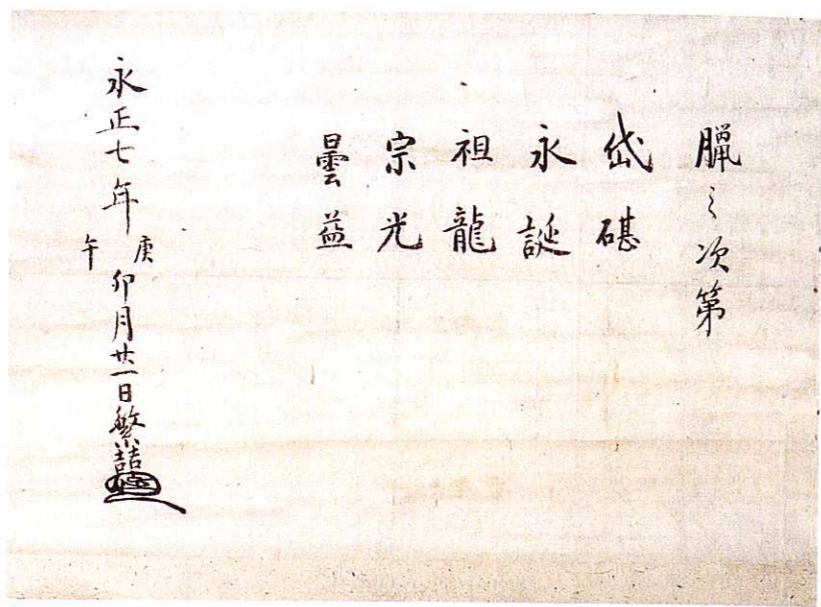 臘之次第
岱碪
永誕
祖龍
宗光
曇益
永正七年庚午卯月廿一日繁喆